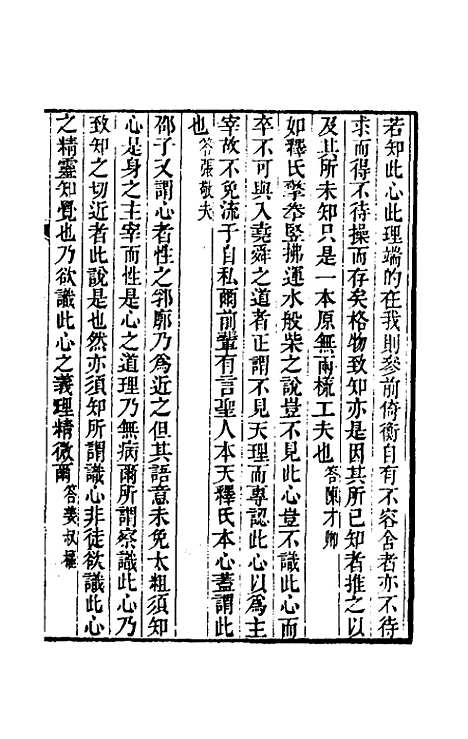 若知此心此理端的在我則參前倚衡自有不容舍者亦不待
求而得不待操而存矣格物致知亦是因其所已知者推之以
及其所未知只是一本原無兩梳工夫也答陳才卿
如釋氏擎拳豎拂運水般柴之說豈不見此心豈不識此心而
卒不可與入堯舜之道者正謂不見天理而專認此心以為主
宰故不免流于自私爾前輩有言聖人本天釋氏本心蓋謂此
也答張敬夫
邵子又謂心者性之郛廓乃為近之但其語意未免太粗須知
心是身之主宰而性是心之道理乃無病爾所謂察識此心乃
致知之切近者此說是也然亦須知所謂識心非徒欲識此心
之精靈知覺也乃欲識此心之義理精微爾答姜叔權